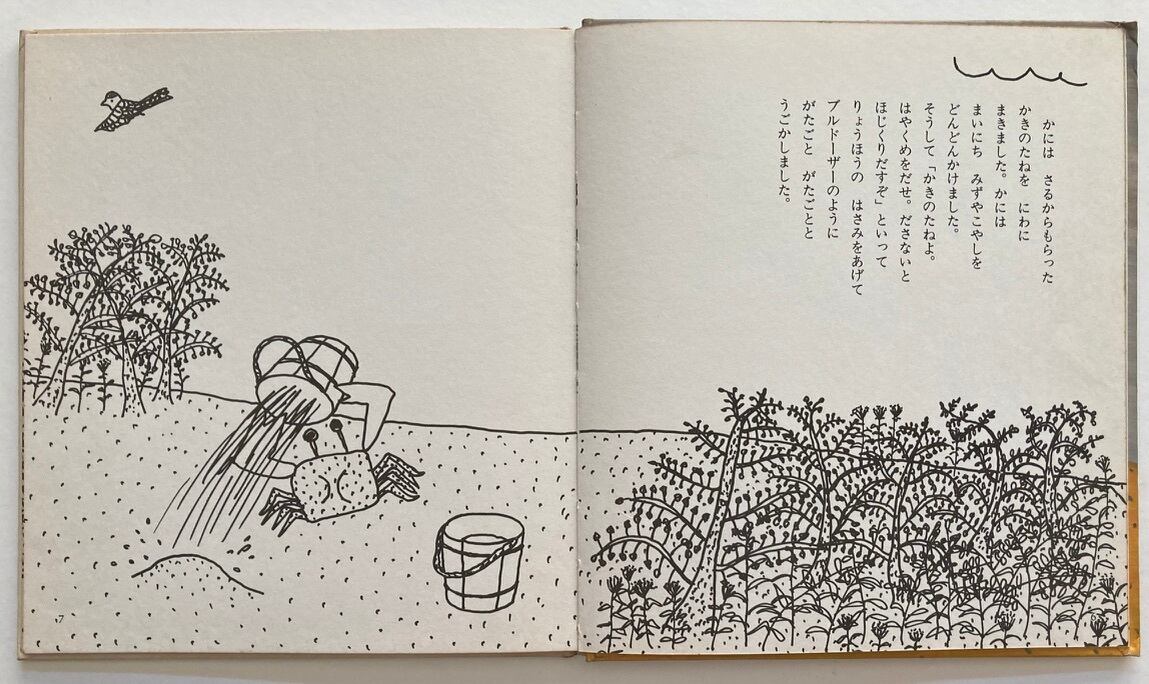 かには　さるからもらった
かきのたねを　にわに
まきました。かには
まいにち　みずやこやしを
どんどんかけました。
そうして「かきのたねよ。
はやくめをだせ。ださないと
ほじくりだすぞ」といって
りょうほうの　はさみをあげて
ブルドーザーのように
がたごと　がたごとと
うごかしました。
7